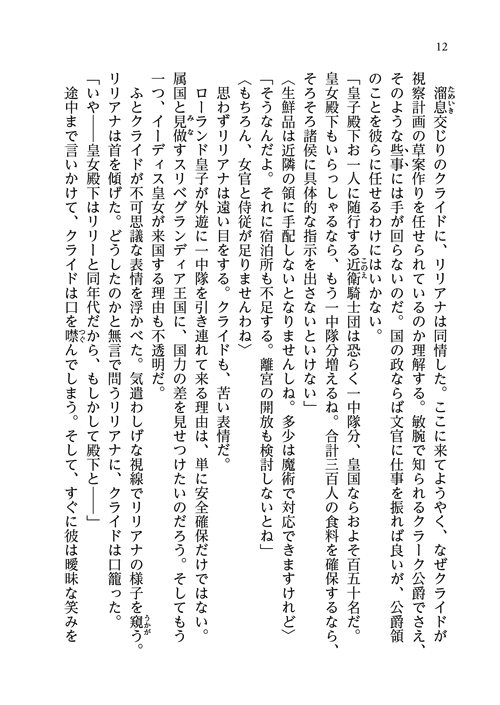 12
溜息交じりのクライドに、リリアナは同情した。ここに来てようやく、なぜクライドが
視察計画の草案作りを任せられているのか理解する。敏腕で知られるクラーク公爵でさえ、
そのような些事には手が回らないのだ。国の政ならば文官に仕事を振れば良いが、公爵領
のことを彼らに任せるわけにはいかない。
「皇子殿下お一人に随行する近衛騎士団は恐らく一中隊分、皇国ならおよそ百五十名だ。
皇女殿下もいらっしゃるなら、もう一中隊分増えるね。合計三百人の食料を確保するなら、
そろそろ諸侯に具体的な指示を出さないといけない」
〈生鮮品は近隣の領に手配しないとなりませんしね。多少は魔術で対応できますけれど〉
「そうなんだよ。それに宿泊所も不足する。離宮の開放も検討しないとね」
〈もちろん、女官と侍従が足りませんわね〉
思わずリリアナは遠い目をする。クライドも、苦い表情だ。
ローランド皇子が外遊に一中隊を引き連れて来る理由は、単に安全確保だけではない。
属国と見做すスリベグランディア王国に、国力の差を見せつけたいのだろう。そしてもう
一つ、イーディス皇女が来国する理由も不透明だ。
ふとクライドが不可思議な表情を浮かべた。気遣わしげな視線でリリアナの様子を窺う。
リリアナは首を傾げた。どうしたのかと無言で問うリリアナに、クライドは口籠った。
「いや――皇女殿下はリリーと同年代だから、もしかして殿下と――」
途中まで言いかけて、クライドは口を噤んでしまう。そして、すぐに彼は曖昧な笑みを